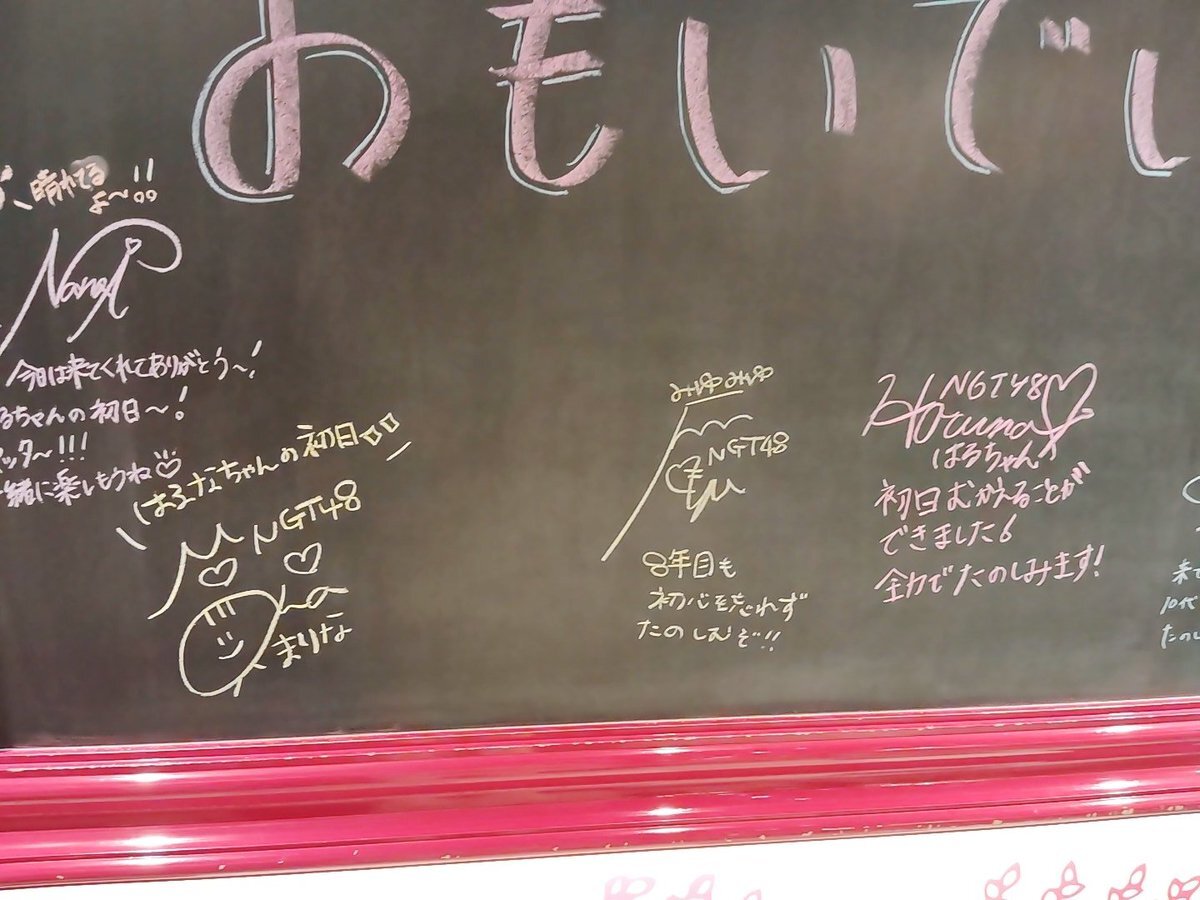 おもいでい
晴れてる
よ〜!!
今日は来てくれてありがとう〜!
るちゃんの初日〜!
ッタ〜!!!
緒に楽しもうね
はるなちゃんの初日
NGT48
まりな
みゆみゆ
NGT48
8年目も
初心を忘れず
たのしむぞ!!
NGT48
Haruna
はるちゃん
初日むかえることが
できました
全力でたのしみます!
来て
10代
たのし